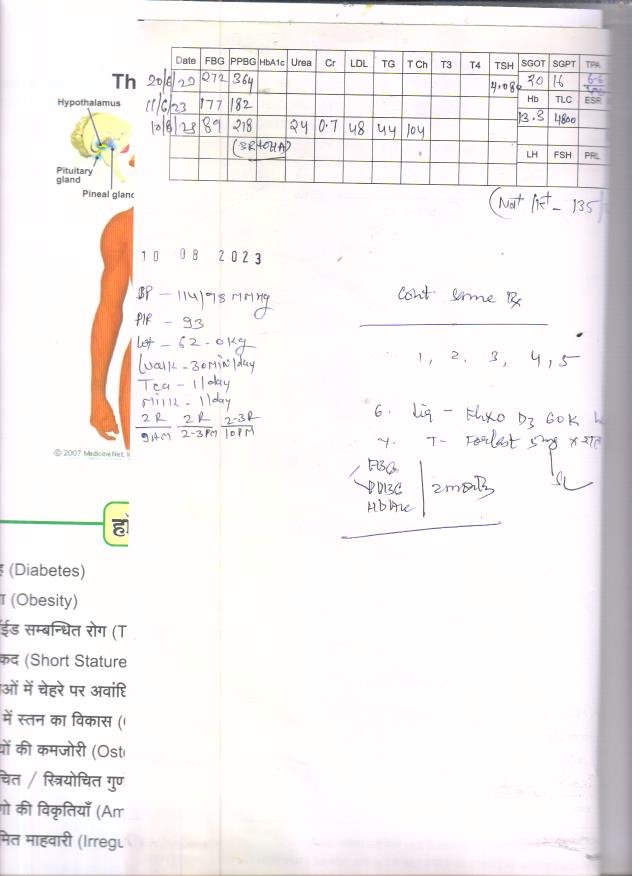 Date FBG PPBG HbA1c Urea Cr LDL TG T Ch T3 T4 TSH SGOT SGPT TPA
20/6/20 272 364 4.080 20 16
Hb TLC ESR
11/6/23 177 182 13.3 4800
10/8/23 89 218 24 0.7 48 44 104
LH FSH PRL
(3R+OHA)
Th
Hypothalamus
Pituitary
gland
Pineal gland
135/
10 08 2023
BP - 114/98 mmHg
P/R - 93
Wt - 62.0kg
Walk - 30 min/day
Tea - 1/day
Milk - 1/day
2R 2R 2-3R
9AM 2-3PM 10PM
Cont same Rx
1, 2, 3, 4, 5
6. Liq - D3 60K
7. T- 5mg
FBG
PPBG
HbA1c
2 month
© 2007 MedicineNet, I
हॉ
ह (Diabetes)
ा (Obesity)
ईड सम्बन्धित रोग (T
कद (Short Stature
ओं में चेहरे पर अवांछि
में स्तन का विकास (
यों की कमजोरी (Oste
चित / स्त्रियोचित गुण
गो की विकृतियाँ (Am
मित माहवारी (Irregu